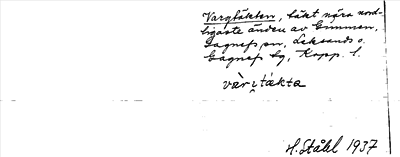 Vargtäkten, täkt nära nord-
ligaste änden av Gimmen,
Gagnefs sn, Leksands o.
Gagnef tg, Kopp. l.
vàrı̯täkta
H. Ståhl 1937